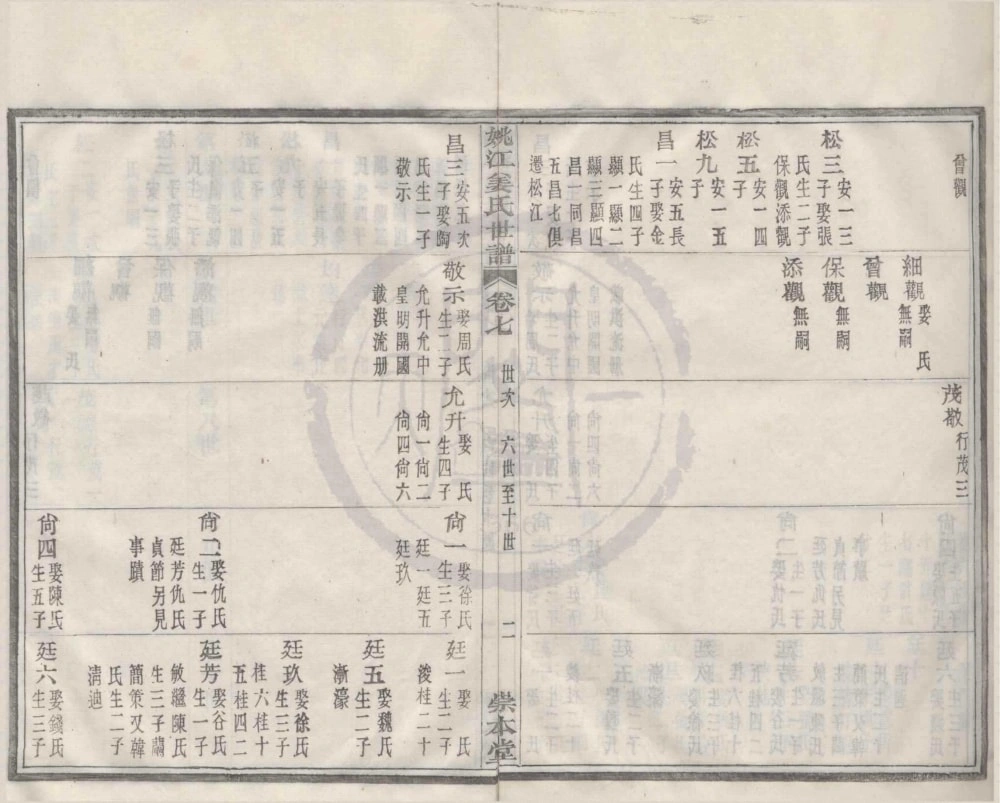 曾觀
松三安一三
子娶張
氏生二子
保觀添觀
松五安一四
子
松九安一五
子
昌一安五長
子娶金
氏生四子
顯一顯二
顯三顯四
昌二同昌
五昌七俱
遷松江
細觀娶 氏
無嗣
曾觀
保觀無嗣
添觀無嗣
茂敬行茂三
姚江姜氏世譜 卷七 世次 六世至十世 二 崇本堂
昌三安五次
子娶陶
氏生一子
敬示
敬示娶周氏
生二子
允升允中
皇明開國
載洪流册
允升娶 氏
生四子
尙一尙二
尙四尙六
尙一娶徐氏
生三子
廷一廷五
廷玖
尙二娶仇氏
生一子
廷芳仇氏
貞節另見
事蹟
尙四娶陳氏
生五子
廷一娶 氏
生二子
浚桂二十
廷五娶魏氏
生二子
漸濠
廷玖娶徐氏
生三子
桂六桂十
五桂四二
廷芳娶谷氏
生一子
敏繼陳氏
生三子蕭
簡策又韓
氏生二子
淸迪
廷六娶錢氏
生三子